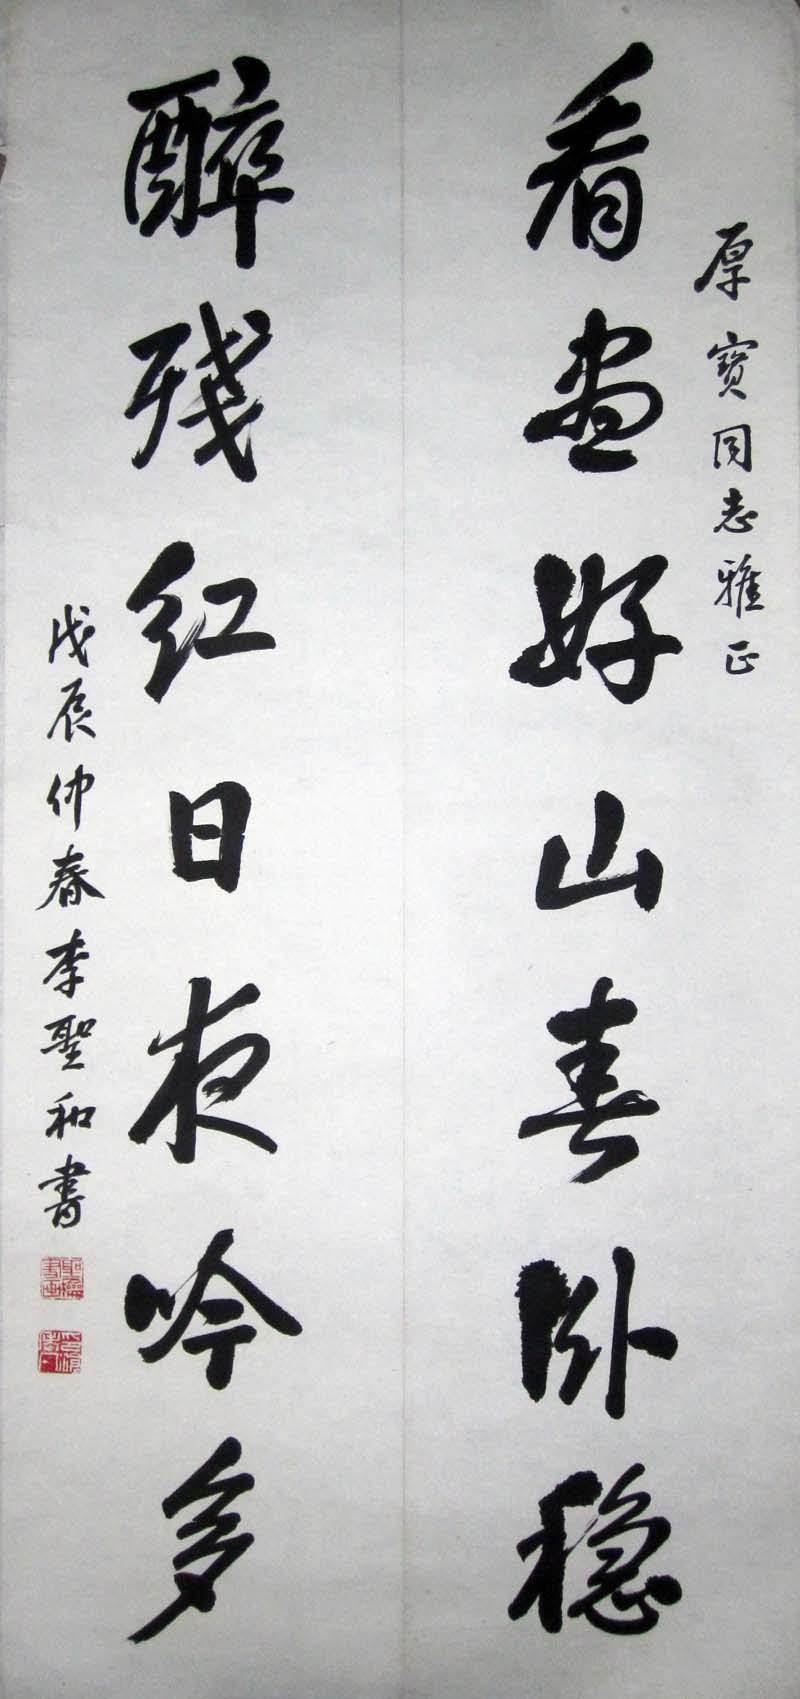 厚寶同志雅正
看盡好山春卧稳
醉殘红日夜吟多
戊辰仲春李聖和書